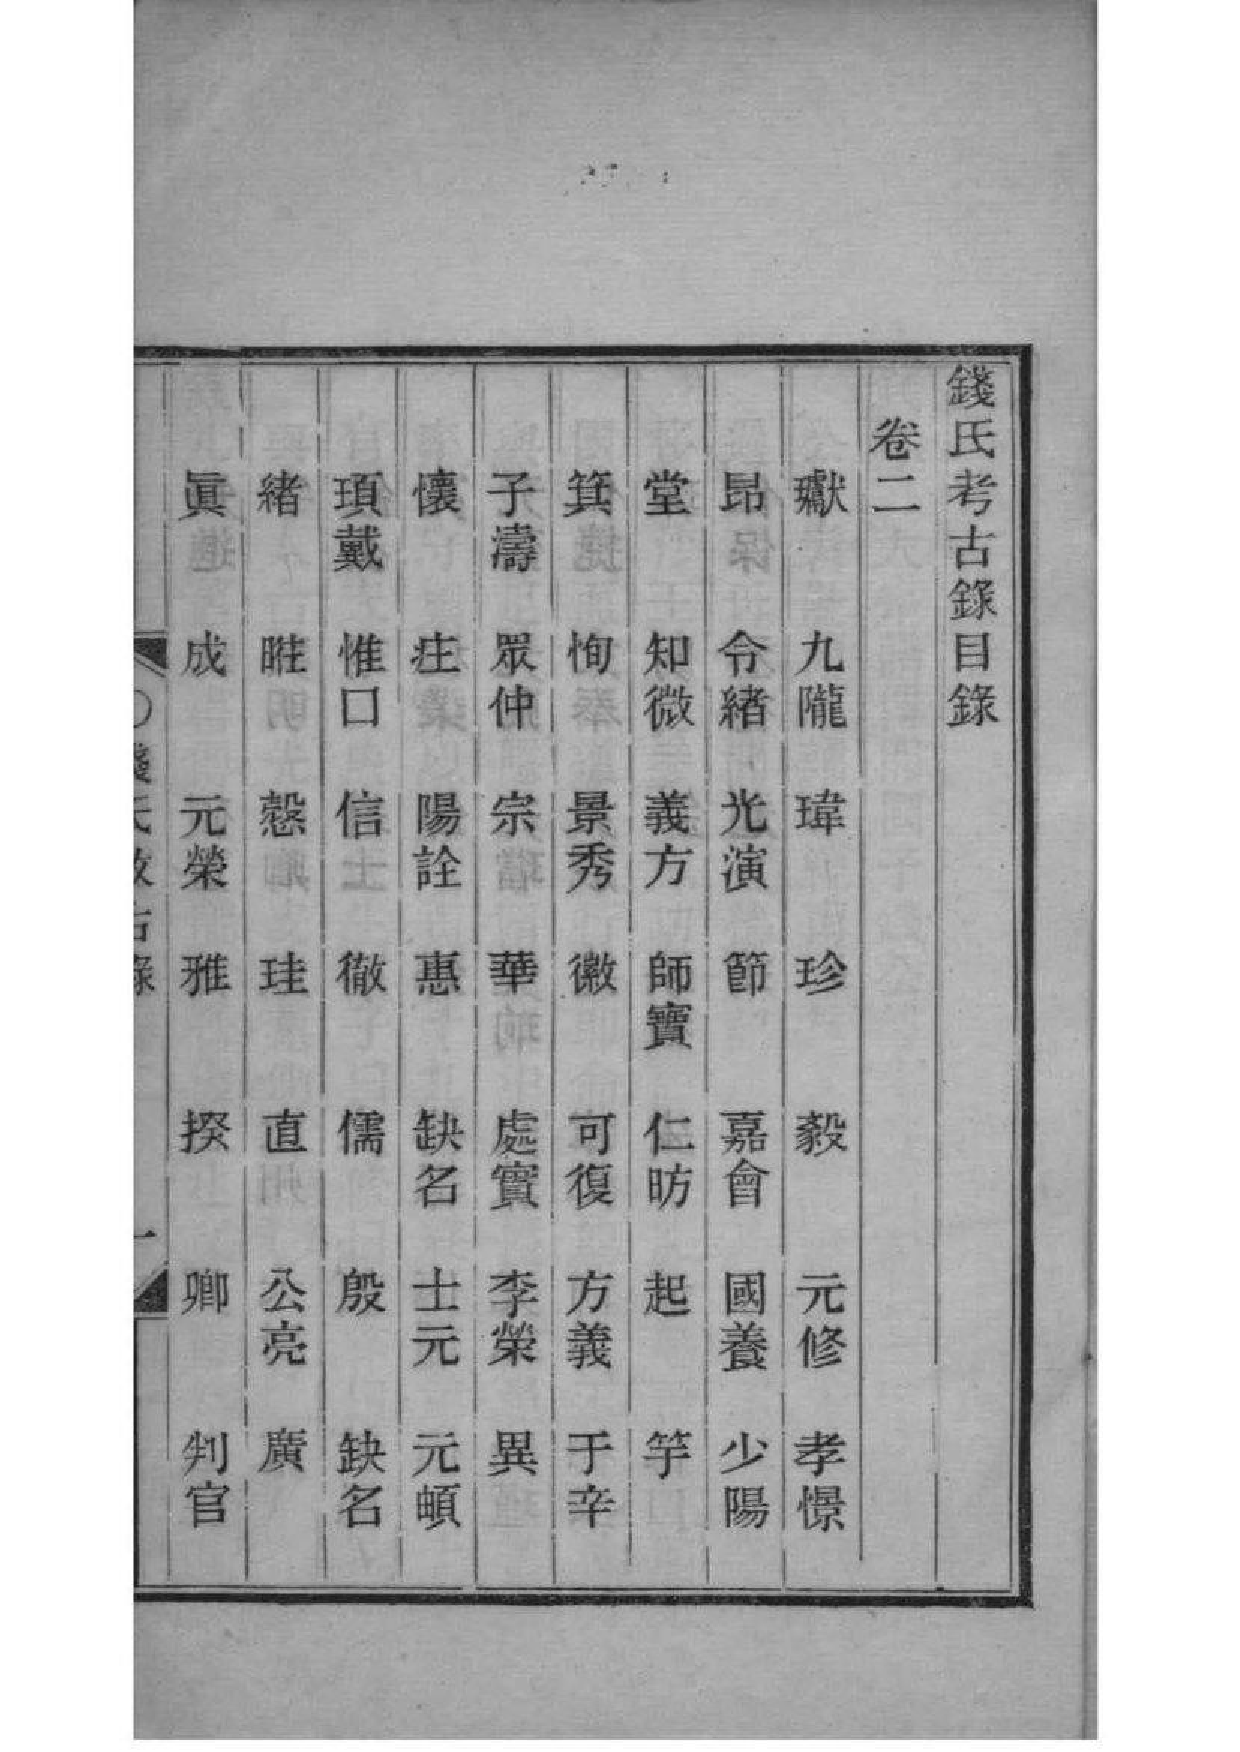 錢氏考古錄目錄
卷二
瓛 九隴 瑋 珍 毅 元修 孝憬
昂 令緒 光演 節 嘉會 國養 少陽
堂 知微 義方 師寶 仁昉 起 竽
箕 恂 景秀 徽 可復 方義 于辛
子濤 眾仲 宗 華 處實 李榮 異
懷 庄 陽詮 惠 缺名 士元 元頔
頊戴 惟口 信 徹 儒 殷 缺名
緒 暀 愨 珪 直 公亮 廣
眞 成 元榮 雅 揆 卿 判官